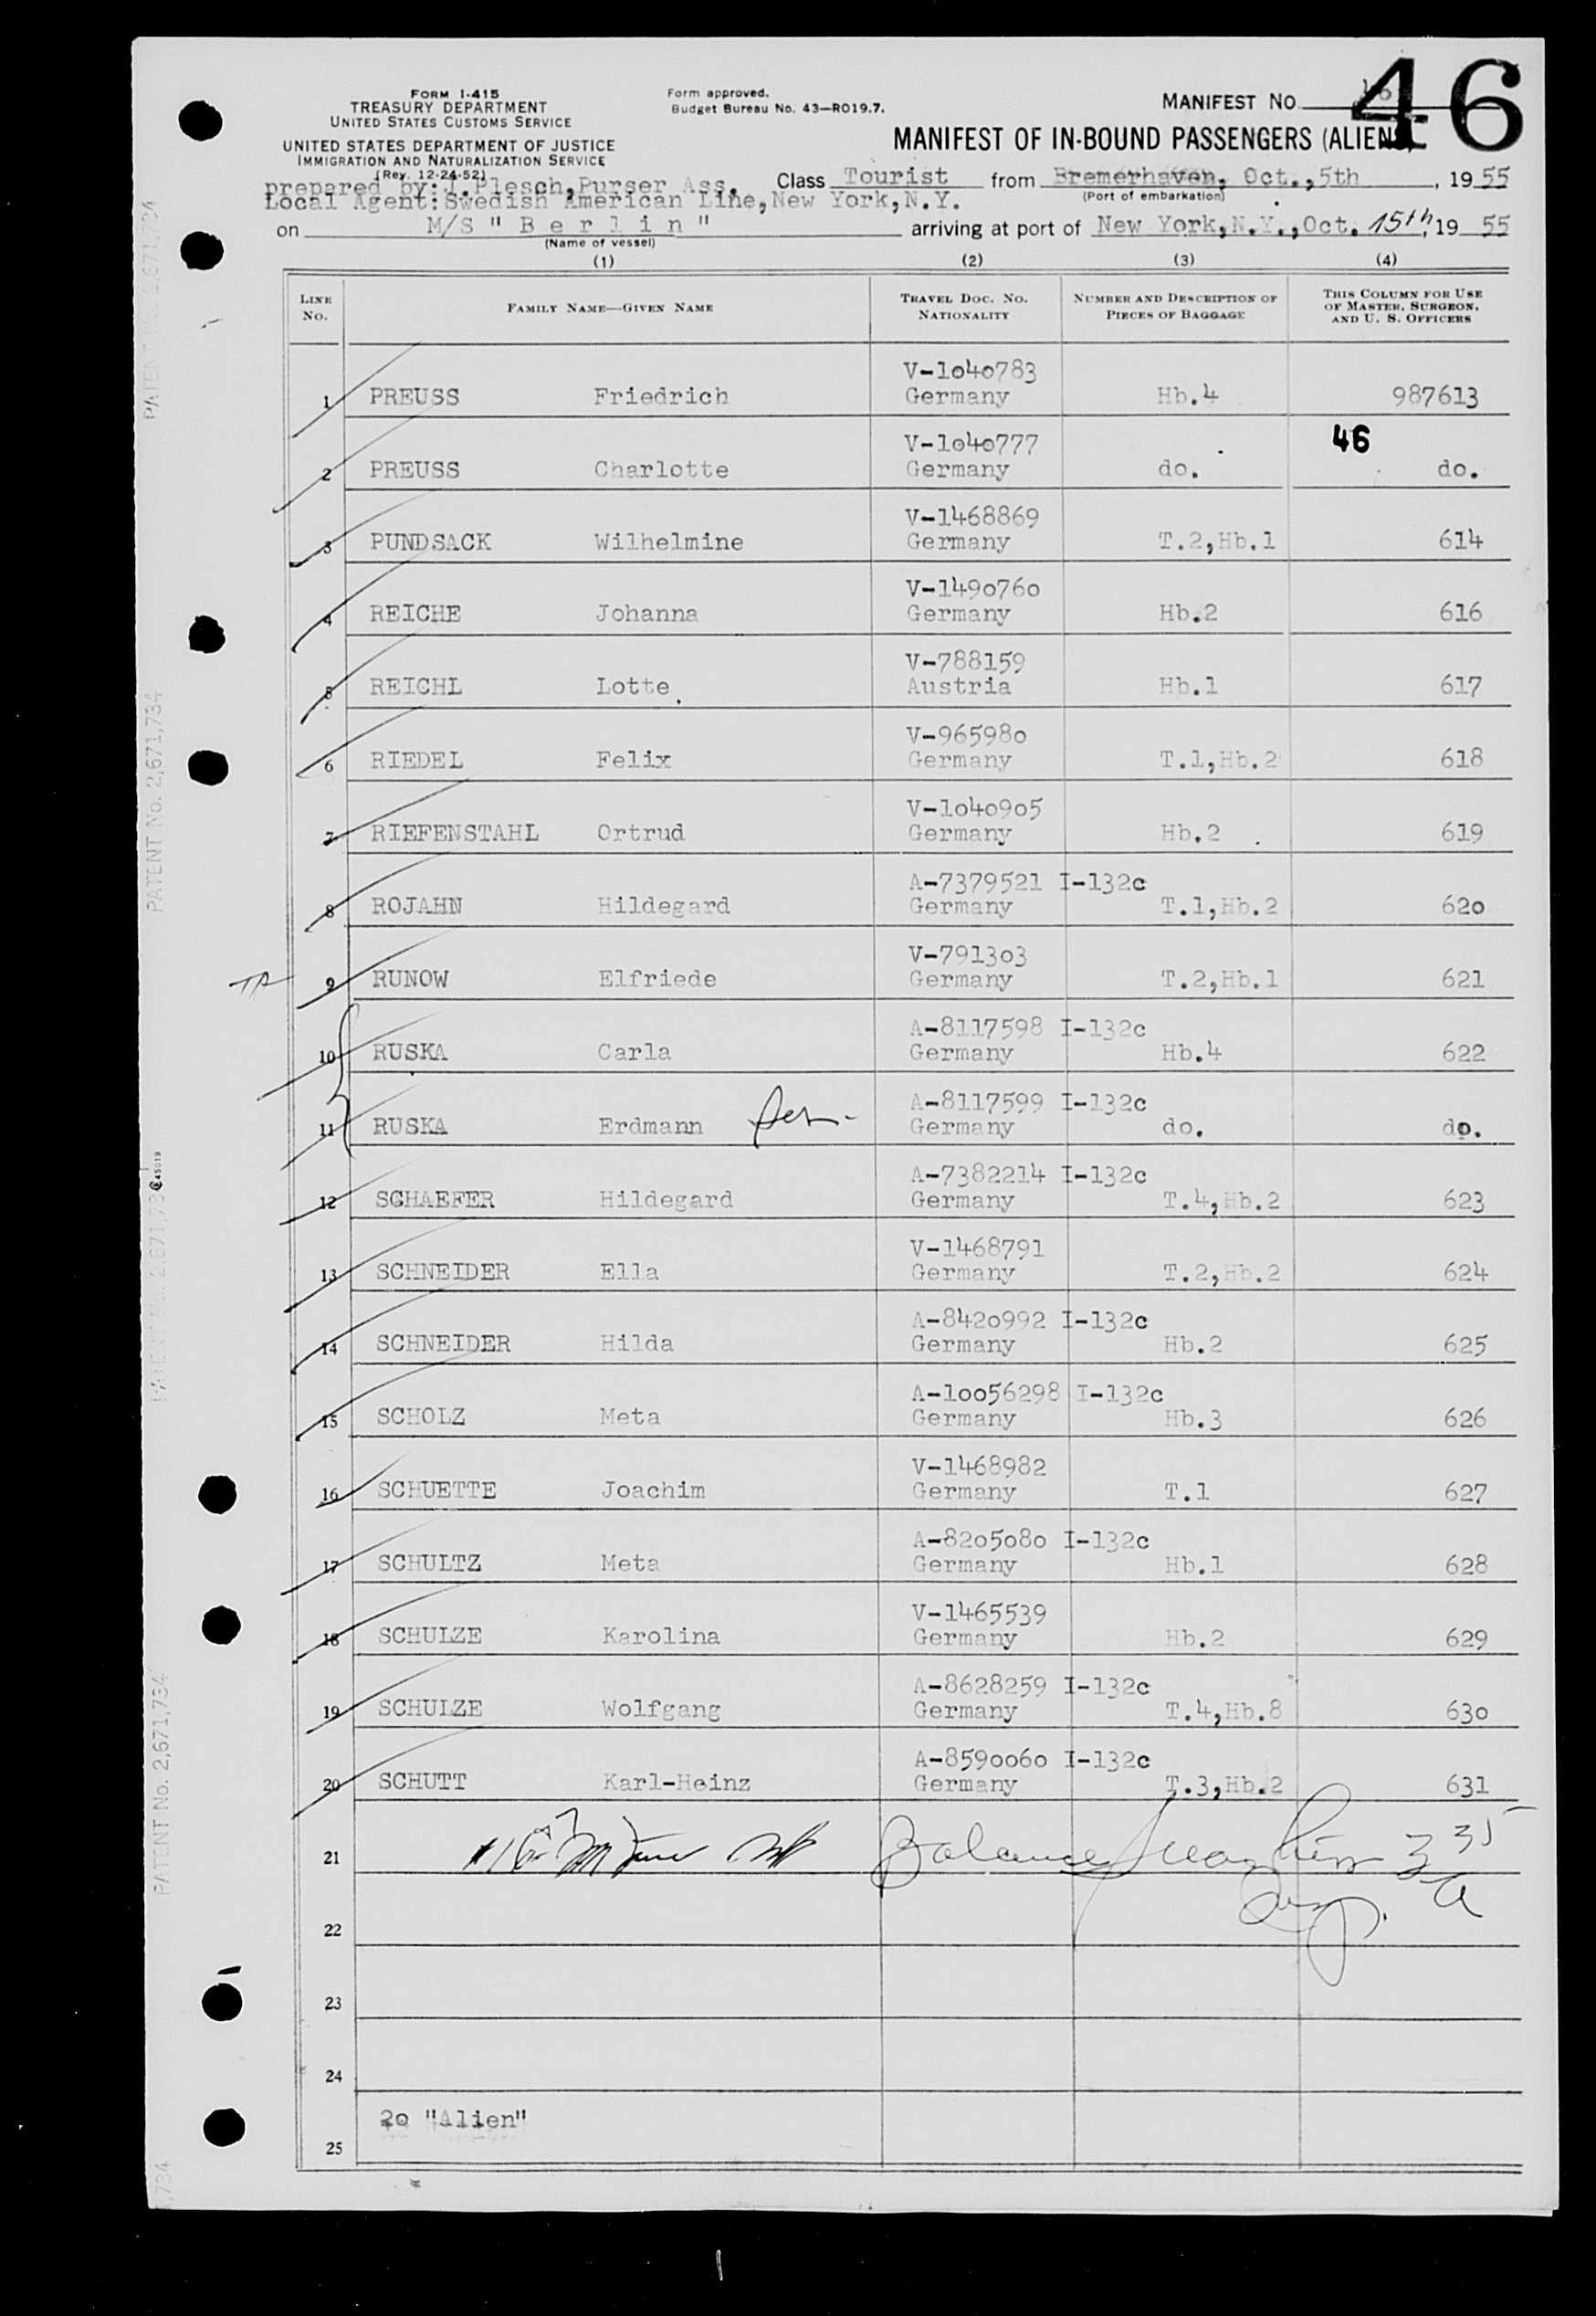 FORM I-415
TREASURY DEPARTMENT
UNITED STATES CUSTOMS SERVICE
UNITED STATES DEPARTMENT OF JUSTICE
IMMIGRATION AND NATURALIZATION SERVICE
(Rev. 12-24-52)
Form approved.
Budget Bureau No. 43—R019.7.
MANIFEST NO.
46
MANIFEST OF IN-BOUND PASSENGERS (ALIENS)
prepared by: J.Plesch,Purser Ass. Class Tourist from Bremerhaven, Oct.,5th, 1955
(Port of embarkation)
Local Agent:Swedish American Line,New York,N.Y.
on M/S " B e r l i n " arriving at port of New York,N.Y.,Oct. 15th, 19 55
(Name of vessel)
(1) (2) (3) (4)
LINE NO. FAMILY NAME—GIVEN NAME TRAVEL DOC. NO. NATIONALITY NUMBER AND DESCRIPTION OF PIECES OF BAGGAGE THIS COLUMN FOR USE OF MASTER, SURGEON, AND U. S. OFFICERS
V-1040783
1 PREUSS Friedrich Germany Hb.4 987613
V-1040777 46
2 PREUSS Charlotte Germany do. do.
V-1468869
3 PUNDSACK Wilhelmine Germany T.2,Hb.1 614
V-1490760
4 REICHE Johanna Germany Hb.2 616
V-788159
5 REICHL Lotte Austria Hb.1 617
V-965980
6 RIEDEL Felix Germany T.1,Hb.2 618
V-1040905
7 RIEFENSTAHL Ortrud Germany Hb.2 619
A-7379521 I-132c
8 ROJAHN Hildegard Germany T.1,Hb.2 620
V-791303
9 RUNOW Elfriede Germany T.2,Hb.1 621
A-8117598 I-132c
10 RUSKA Carla Germany Hb.4 622
A-8117599 I-132c
11 RUSKA Erdmann Germany do. do.
A-7382214 I-132c
12 SCHAEFER Hildegard Germany T.4,Hb.2 623
V-1468791
13 SCHNEIDER Ella Germany T.2,Hb.2 624
A-8420992 I-132c
14 SCHNEIDER Hilda Germany Hb.2 625
A-10056298 I-132c
15 SCHOLZ Meta Germany Hb.3 626
V-1468982
16 SCHUETTE Joachim Germany T.1 627
A-8205080 I-132c
17 SCHULTZ Meta Germany Hb.1 628
V-1465539
18 SCHULZE Karolina Germany Hb.2 629
A-8628259 I-132c
19 SCHULZE Wolfgang Germany T.4,Hb.8 630
A-8590060 I-132c
20 SCHUTT Karl-Heinz Germany T.3,Hb.2 631
21 Balance
22
23
24
20 "Alien"
25
PATENT No. 2,671,734
PATENT No. 2,671,734
PATENT No. 2,671,734
PATENT No. 2,671,734
,734